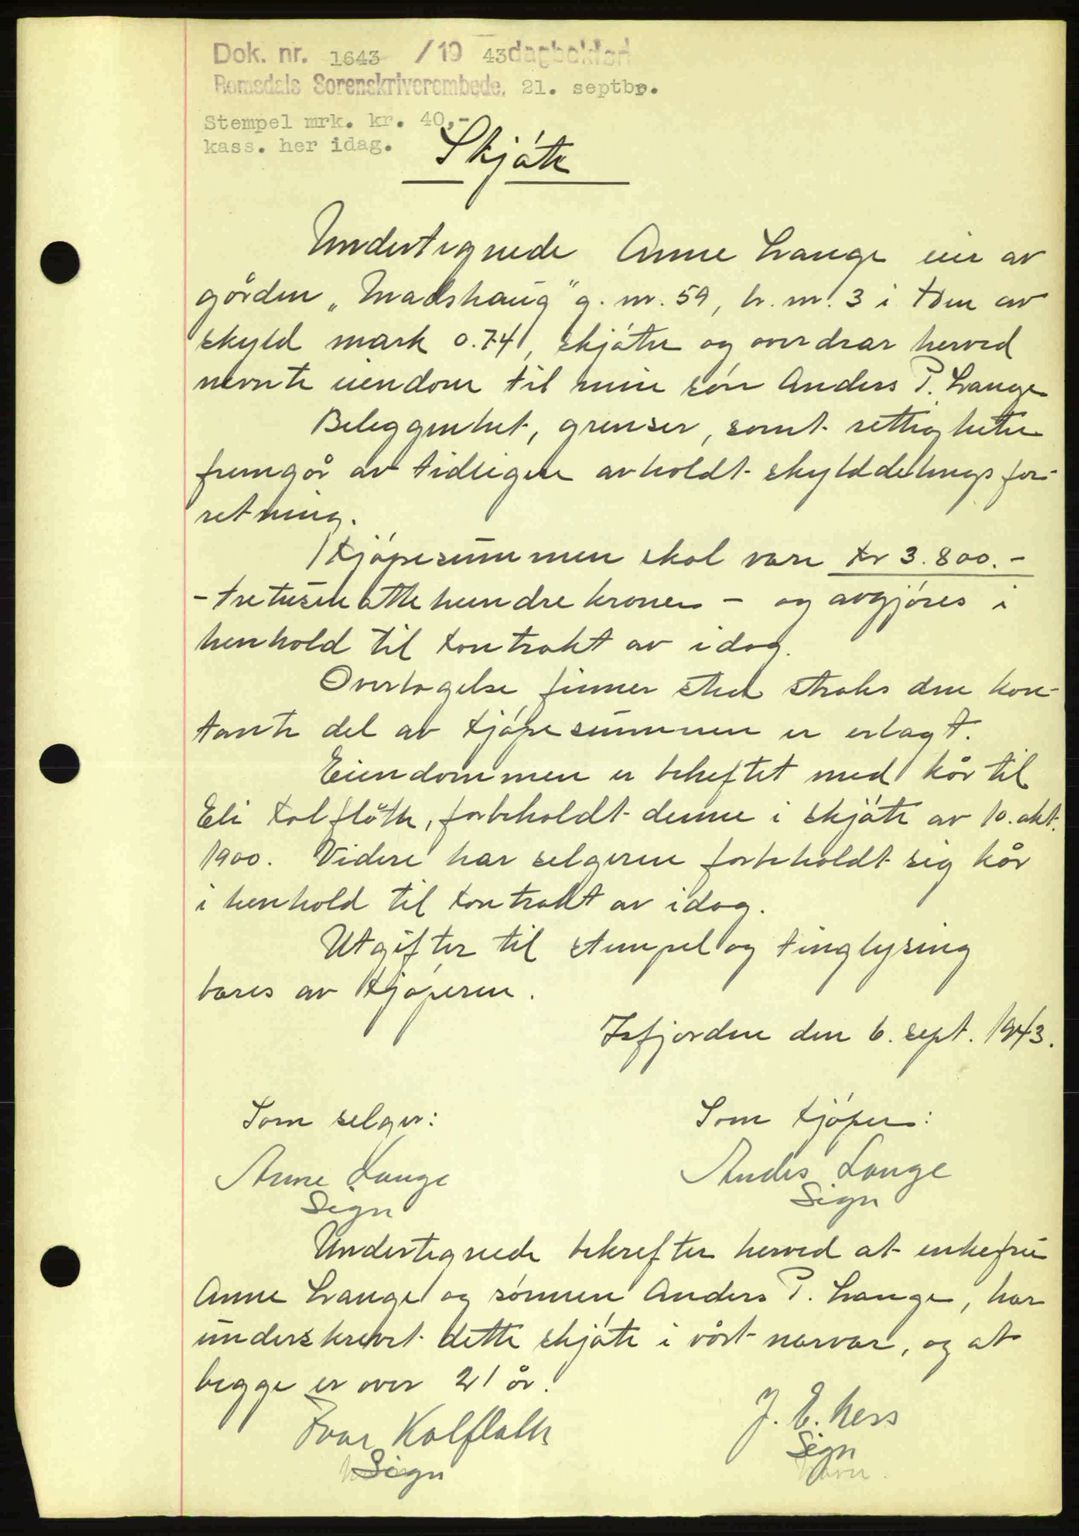 Dok. nr. 1643 /19 43 dagbokført
Romsdals Sorenskriverembede, 21. septbr.
Stempel mrk. kr. 40,-
kass. her idag.
Skjøte
Undertegnede Anne Lange eier av
gården „Madshaug" g. nr. 59, br. nr. 3 i Hen av
skyld mark 0.74, skjøter og overdrar herved
nevnte eiendom til min sønn Anders P. Lange
Beliggenhet, grenser, samt rettigheter
fremgår av tidligere avholdt skylddelings for-
retning.
Kjøpesummen skal være kr 3.800.-
- tretusen åtte hundre kroner - og avgjøres i
henhold til kontrakt av idag.
Overtagelse finner sted straks den kon-
tante del av kjøpesummen er erlagt.
Eiendommen er beheftet med kår til
Eli Kolflåth, forbeholdt denne i skjøte av 10. okt.
1900. Videre har selgeren forbeholdt sig kår
i henhold til kontrakt av idag.
Utgifter til stempel og tinglysing
bæres av kjøperen.
Isfjorden den 6. sept. 1943.
Som selger: Som kjøper:
Anne Lange Anders Lange
Sign Sign
Undertegnede bekrefter herved at enkefru
Anne Lange og sønnen Anders P. Lange, har
underskrevet dette skjøte i vårt nærvær, og at
begge er over 21 år.
Ivar Kolflath J. E. Ness
Sign Sign